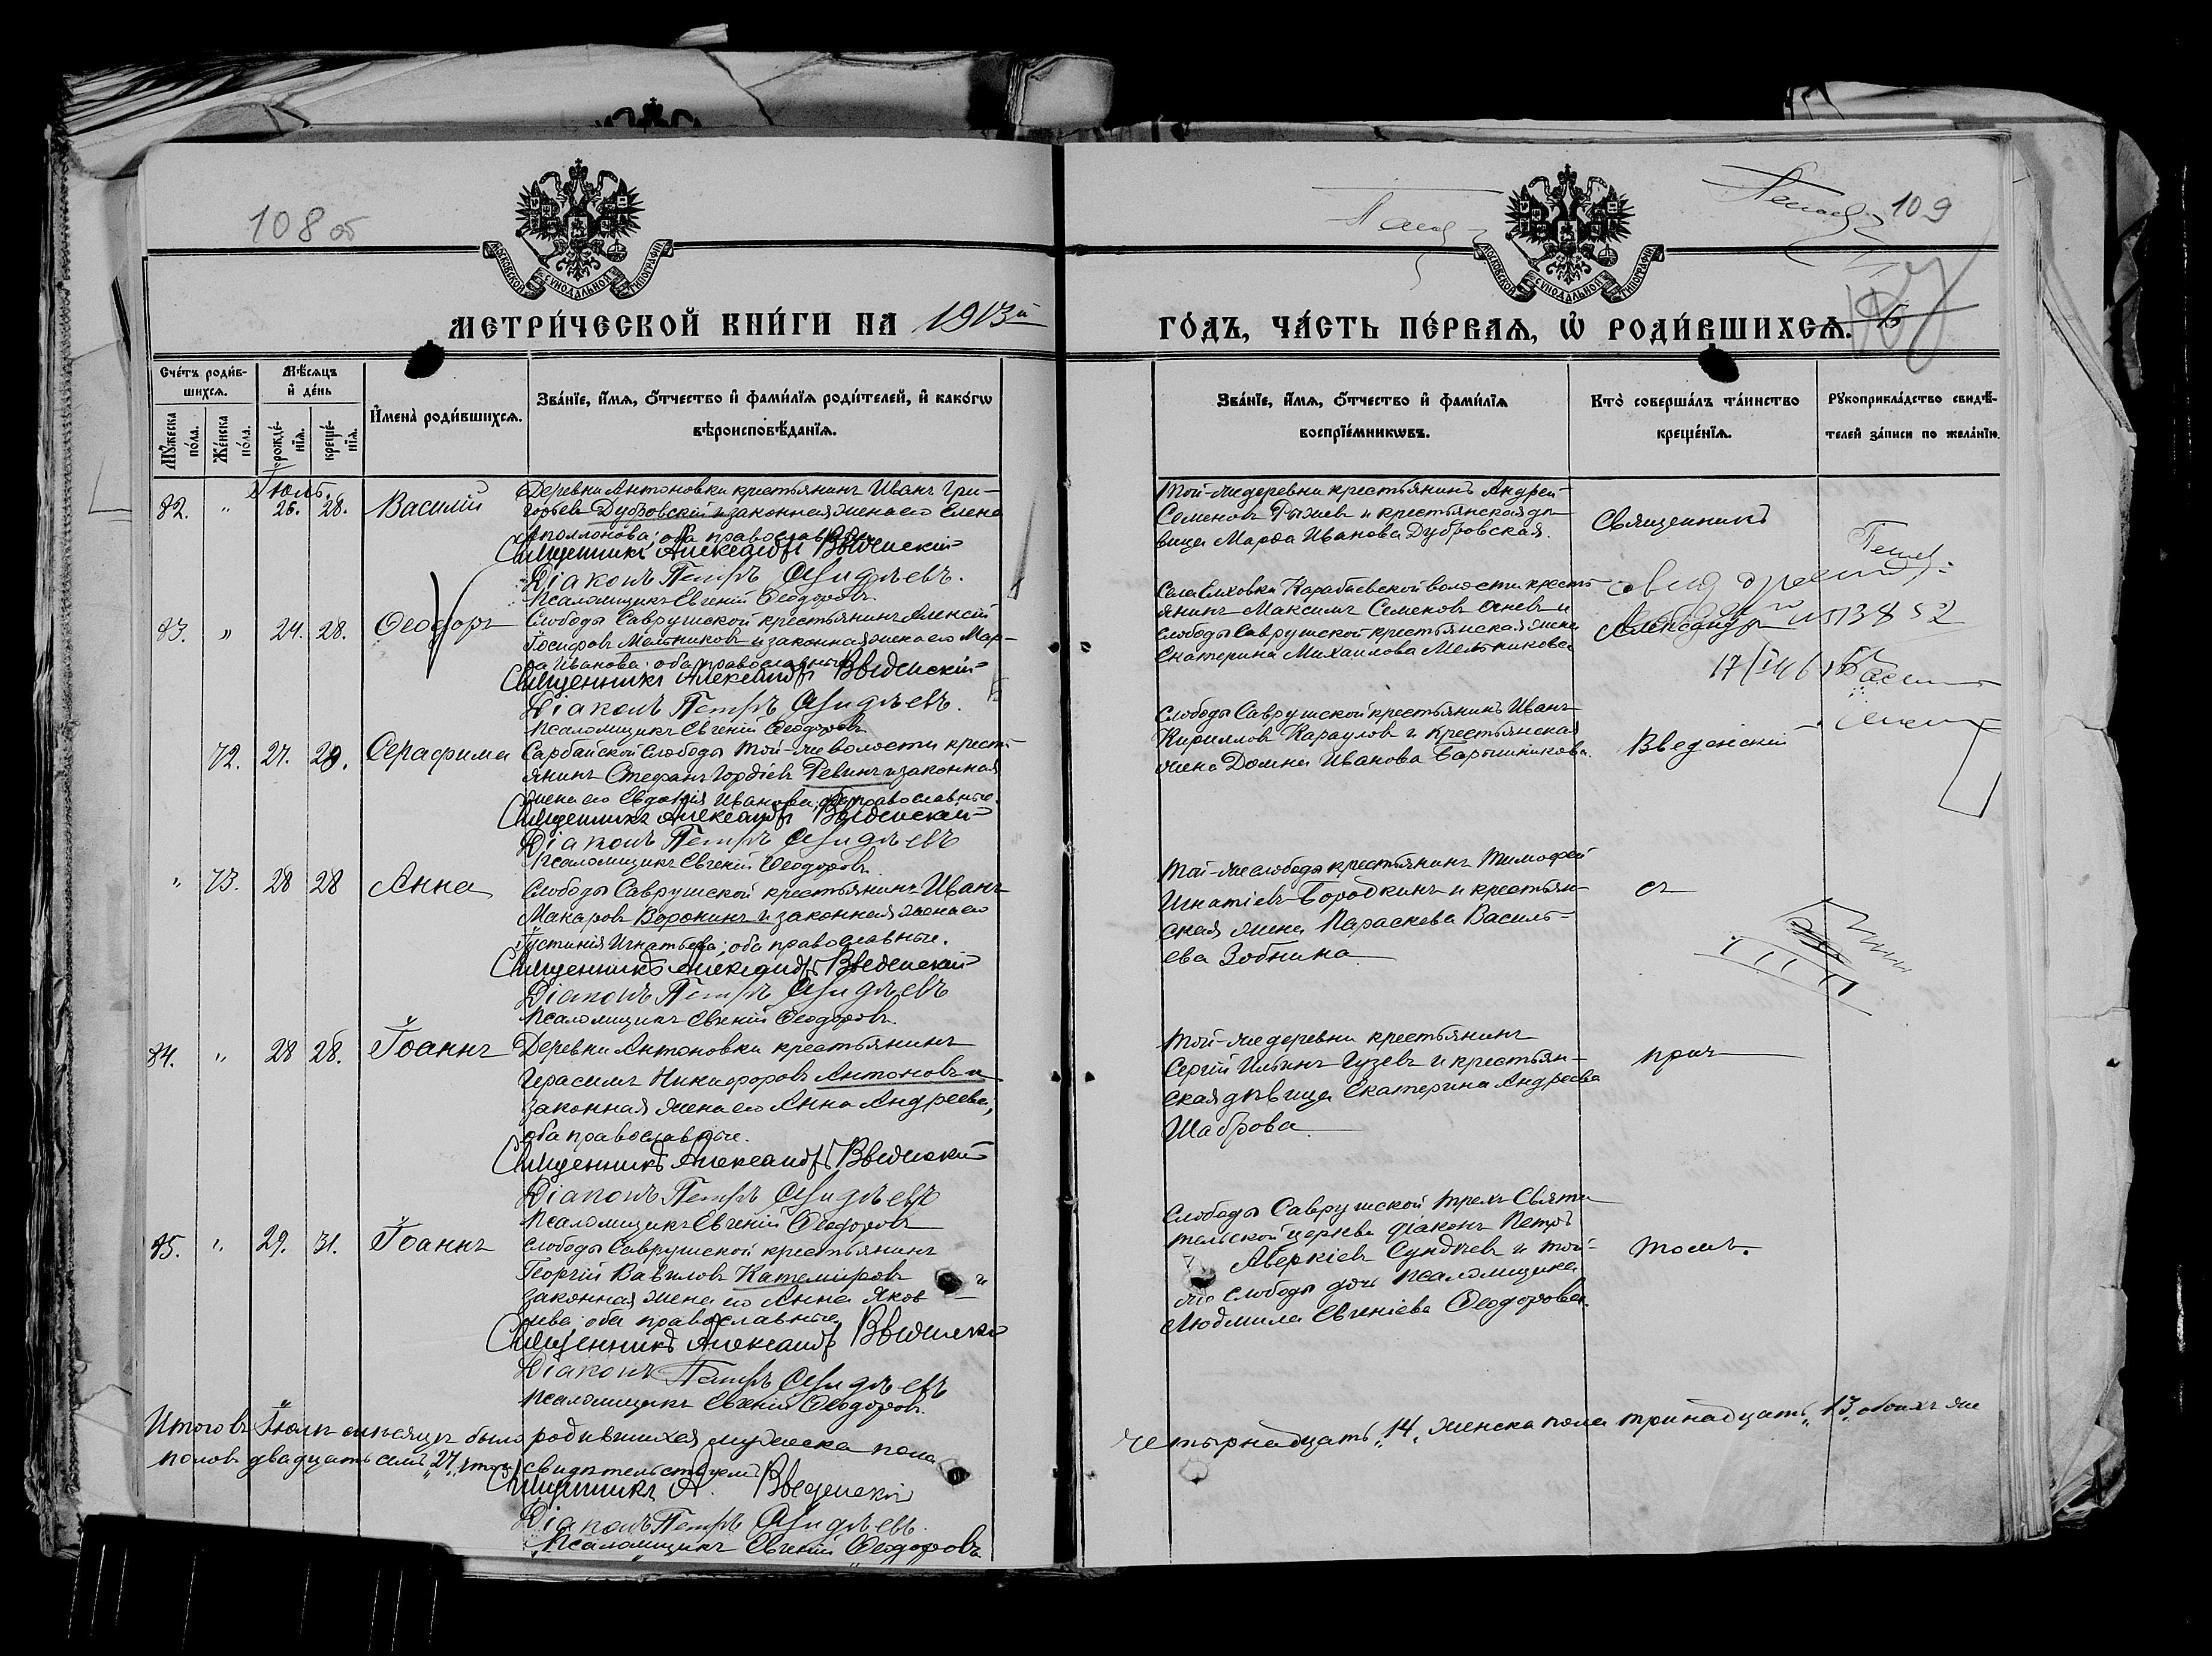 108 об
109
МОСКОВСКОЙ СѴНОДАЛЬНОЙ ТИПОГРАФІИ
МОСКОВСКОЙ СѴНОДАЛЬНОЙ ТИПОГРАФІИ
МЕТРИ́ЧЕСКОЙ КНИ́ГИ НА 1913й
ГО́ДЪ, ЧА́СТЬ ПЕ́РВАѦ, Ѡ҆ РОДИ́ВШИХСѦ.
Сче́тъ роди́в-
шихсѧ.
Мѣ́сѧцъ
и҆ де́нь
Мꙋ́жеска по́ла.
Же́нска по́ла.
рожде́-нїѧ.
креще́-нїѧ.
И҆мена̀ роди́вшихсѧ.
Зва́нїе, и҆́мѧ, ѻ҆́тчество и҆ фами́лїѧ роди́телей, и҆ како́гѡ
вѣроисповѣ́данїѧ.
Зва́нїе, и҆́мѧ, ѻ҆́тчество и҆ фами́лїѧ
воспрїе́мникѡвъ.
Кто̀ соверша́лъ та́инство
креще́нїѧ.
Рꙋкоприкла́дство свидѣ́-
телей за́писи по жела́нїю.
Іюль.
82. " 26. 28. Василій
Деревни Антоновки крестьянинъ Иванъ Гри-
горьевъ Дубровскій и законная жена его Елена
Аполлонова; оба православные
Священникъ Александръ Введенскій
Діаконъ Петръ Сундѣевъ.
Псаломщикъ Евгеній Ѳеодоровъ
Той-же деревни крестьянинъ Андрей
Семеновъ Рыжевъ и крестьянская дѣ-
вица Марѳа Иванова Дубровская.
Священникъ
83. " 24. 28. Ѳеодоръ
Слободы Саврушской крестьянинъ Алексій
Іосифовъ Мельниковъ и законная жена его Мар-
ѳа Иванова; оба православные
Священникъ Александръ Введенскій
Діаконъ Петръ Сундѣевъ.
Псаломщикъ Евгеній Ѳеодоровъ
Села Елховки Карабаевской волости кресть-
янинъ Максимъ Семеновъ Огневъ и
слободы Саврушской крестьянская жена
Екатерина Михаилова Мельникова
Александръ
72. 27. 28. Серафима
Сарбайской Слободы той-же волости кресть-
янинъ Стефанъ Гордіевъ Ревинъ и законная
жена его Евдокія Иванова; оба православные.
Священникъ Александръ Введенскій
Діаконъ Петръ Сундѣевъ
Псаломщикъ Евгеній Ѳеодоровъ.
Слободы Саврушской крестьянинъ Иванъ
Кирилловъ Карауловъ и крестьянская
жена Домна Иванова Барышникова.
Введенскій
" 73. 28 28 Анна
Слободы Саврушской крестьянинъ Иванъ
Макаровъ Воронинъ и законная жена его
Іустинія Игнатьева; оба православные.
Священникъ Александръ Введенскій
Діаконъ Петръ Сундѣевъ
Псаломщикъ Евгеній Ѳеодоровъ.
Той-же слободы крестьянинъ Тимофей
Игнатіевъ Бородкинъ и крестьян-
ская жена Параскева Василь-
ева Зобнина
съ
84. " 28 28. Іоаннъ
Деревни Антоновки крестьянинъ
Герасимъ Никифоровъ Антоновъ и
законная жена его Анна Андреева;
оба православные.
Священникъ Александръ Введенскій
Діаконъ Петръ Сундѣевъ
Псаломщикъ Евгеній Ѳеодоровъ
Той-же деревни крестьянинъ
Сергій Ильинъ Гузевъ и крестьян-
ская дѣвица Екатерина Андреева
Шаброва
прич
85. " 29. 31. Іоаннъ
Слободы Саврушской крестьянинъ
Георгій Вавиловъ Катемировъ и
законная жена его Анна Яков
лева; оба православные
Священникъ Александръ Введенскій
Діаконъ Петръ Сундѣевъ
Псаломщикъ Евгеній Ѳеодоровъ.
Слободы Саврушской Трехъ-Святи-
тельской церкви діаконъ Петръ
Аверкіевъ Сундѣевъ и той-
же слободы дочь псаломщика
Людмила Евгеніева Ѳеодорова.
томъ.
Итого въ Іюлѣ мѣсяцѣ было родившихся мужеска пола четырнадцать „14„ женска пола тринадцать „13„ обоихъ же
половъ двадцать семь „27„ свидѣтельствуемъ
Священникъ А. Введенскій
Діаконъ Петръ Сундѣевъ.
Псаломщикъ Евгеній Ѳеодоровъ